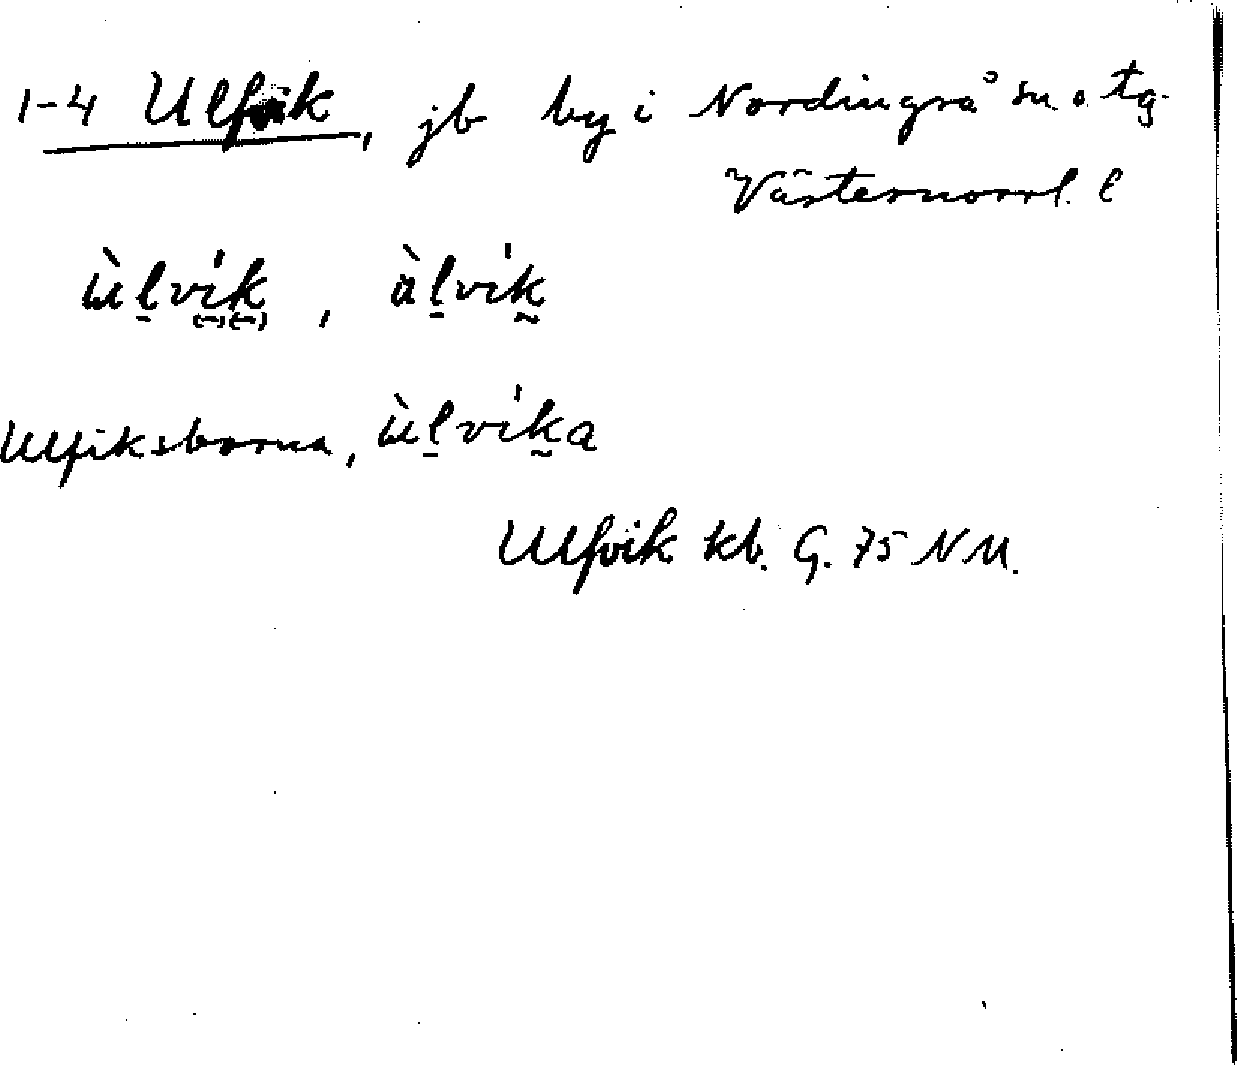 1-4 Ulfvik, jb by i Nordingrå sn o. tg.
Västernorrl. l
ùlvik, àlvik
Ulfiksborna, ùlvika
Ulfvik kb. G. 75 NM.